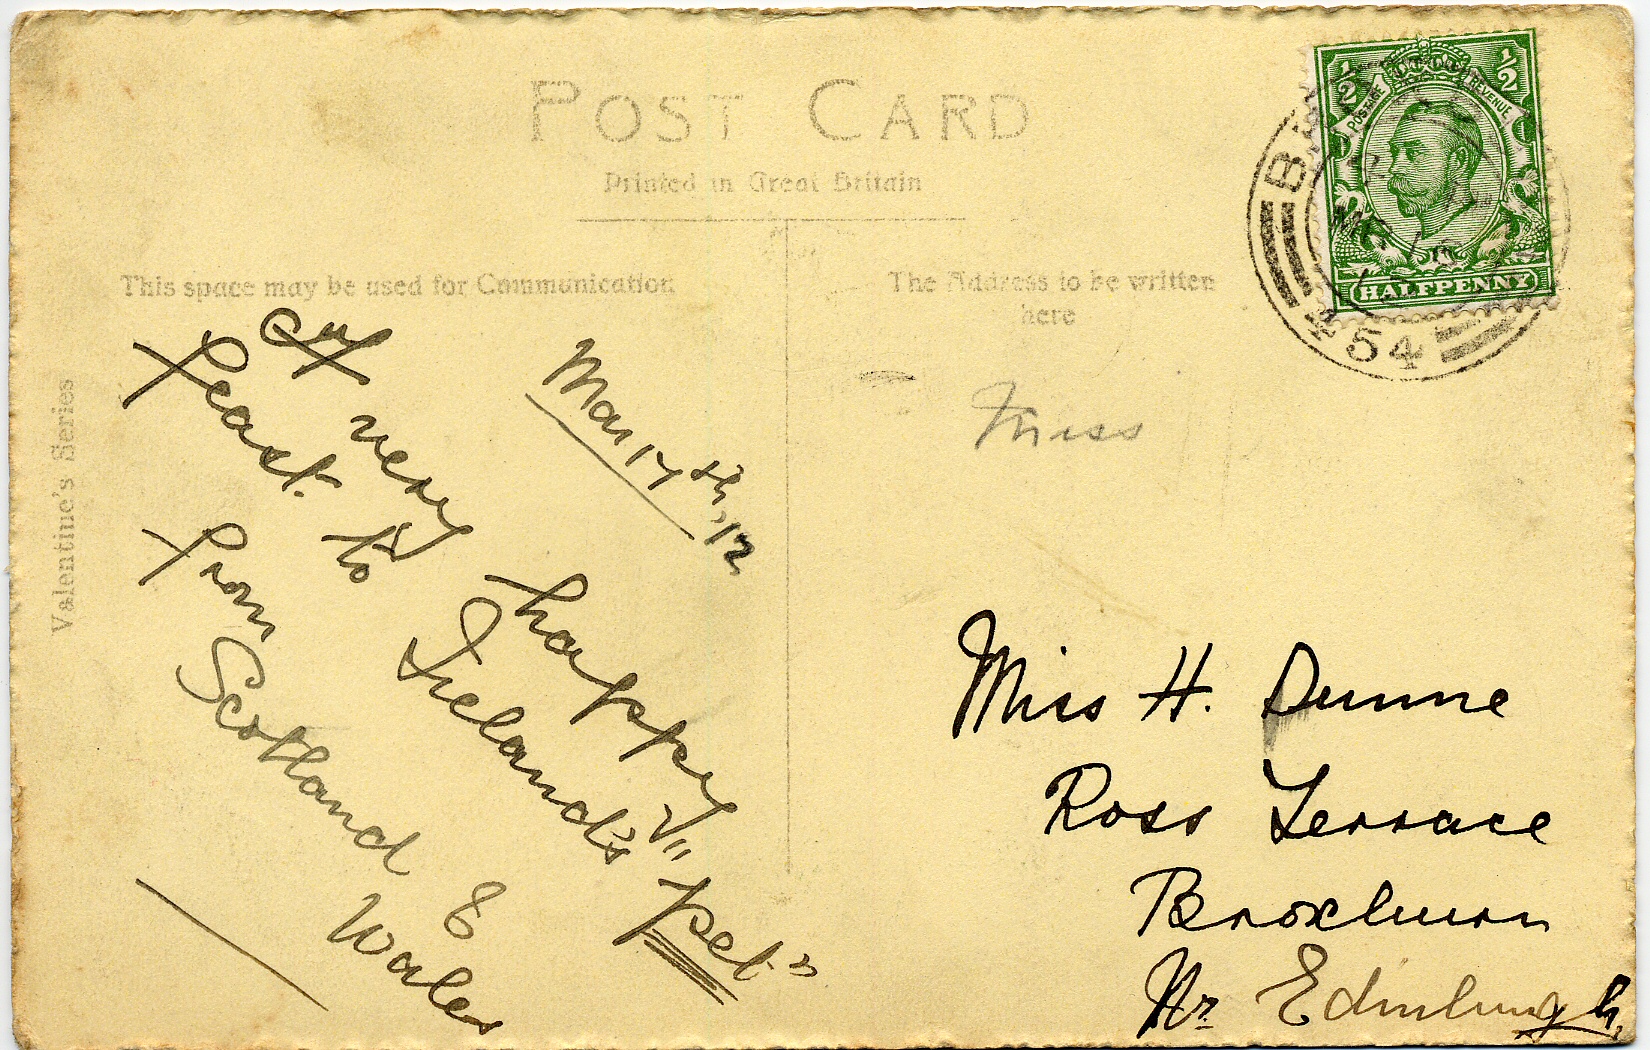 POST CARD
Printed in Great Britain
This space may be used for Communication
The Address to be written
here
Valentine's Series
½ ½
POSTAGE REVENUE
HALFPENNY
B
MR
54
Mar 17th, 12
A very happy
feast. to Ireland's "pet"
from
Scotland &
Wales
Miss
Miss H. Dunne
Ross Terrace
Broxburn
Nr Edinburgh.